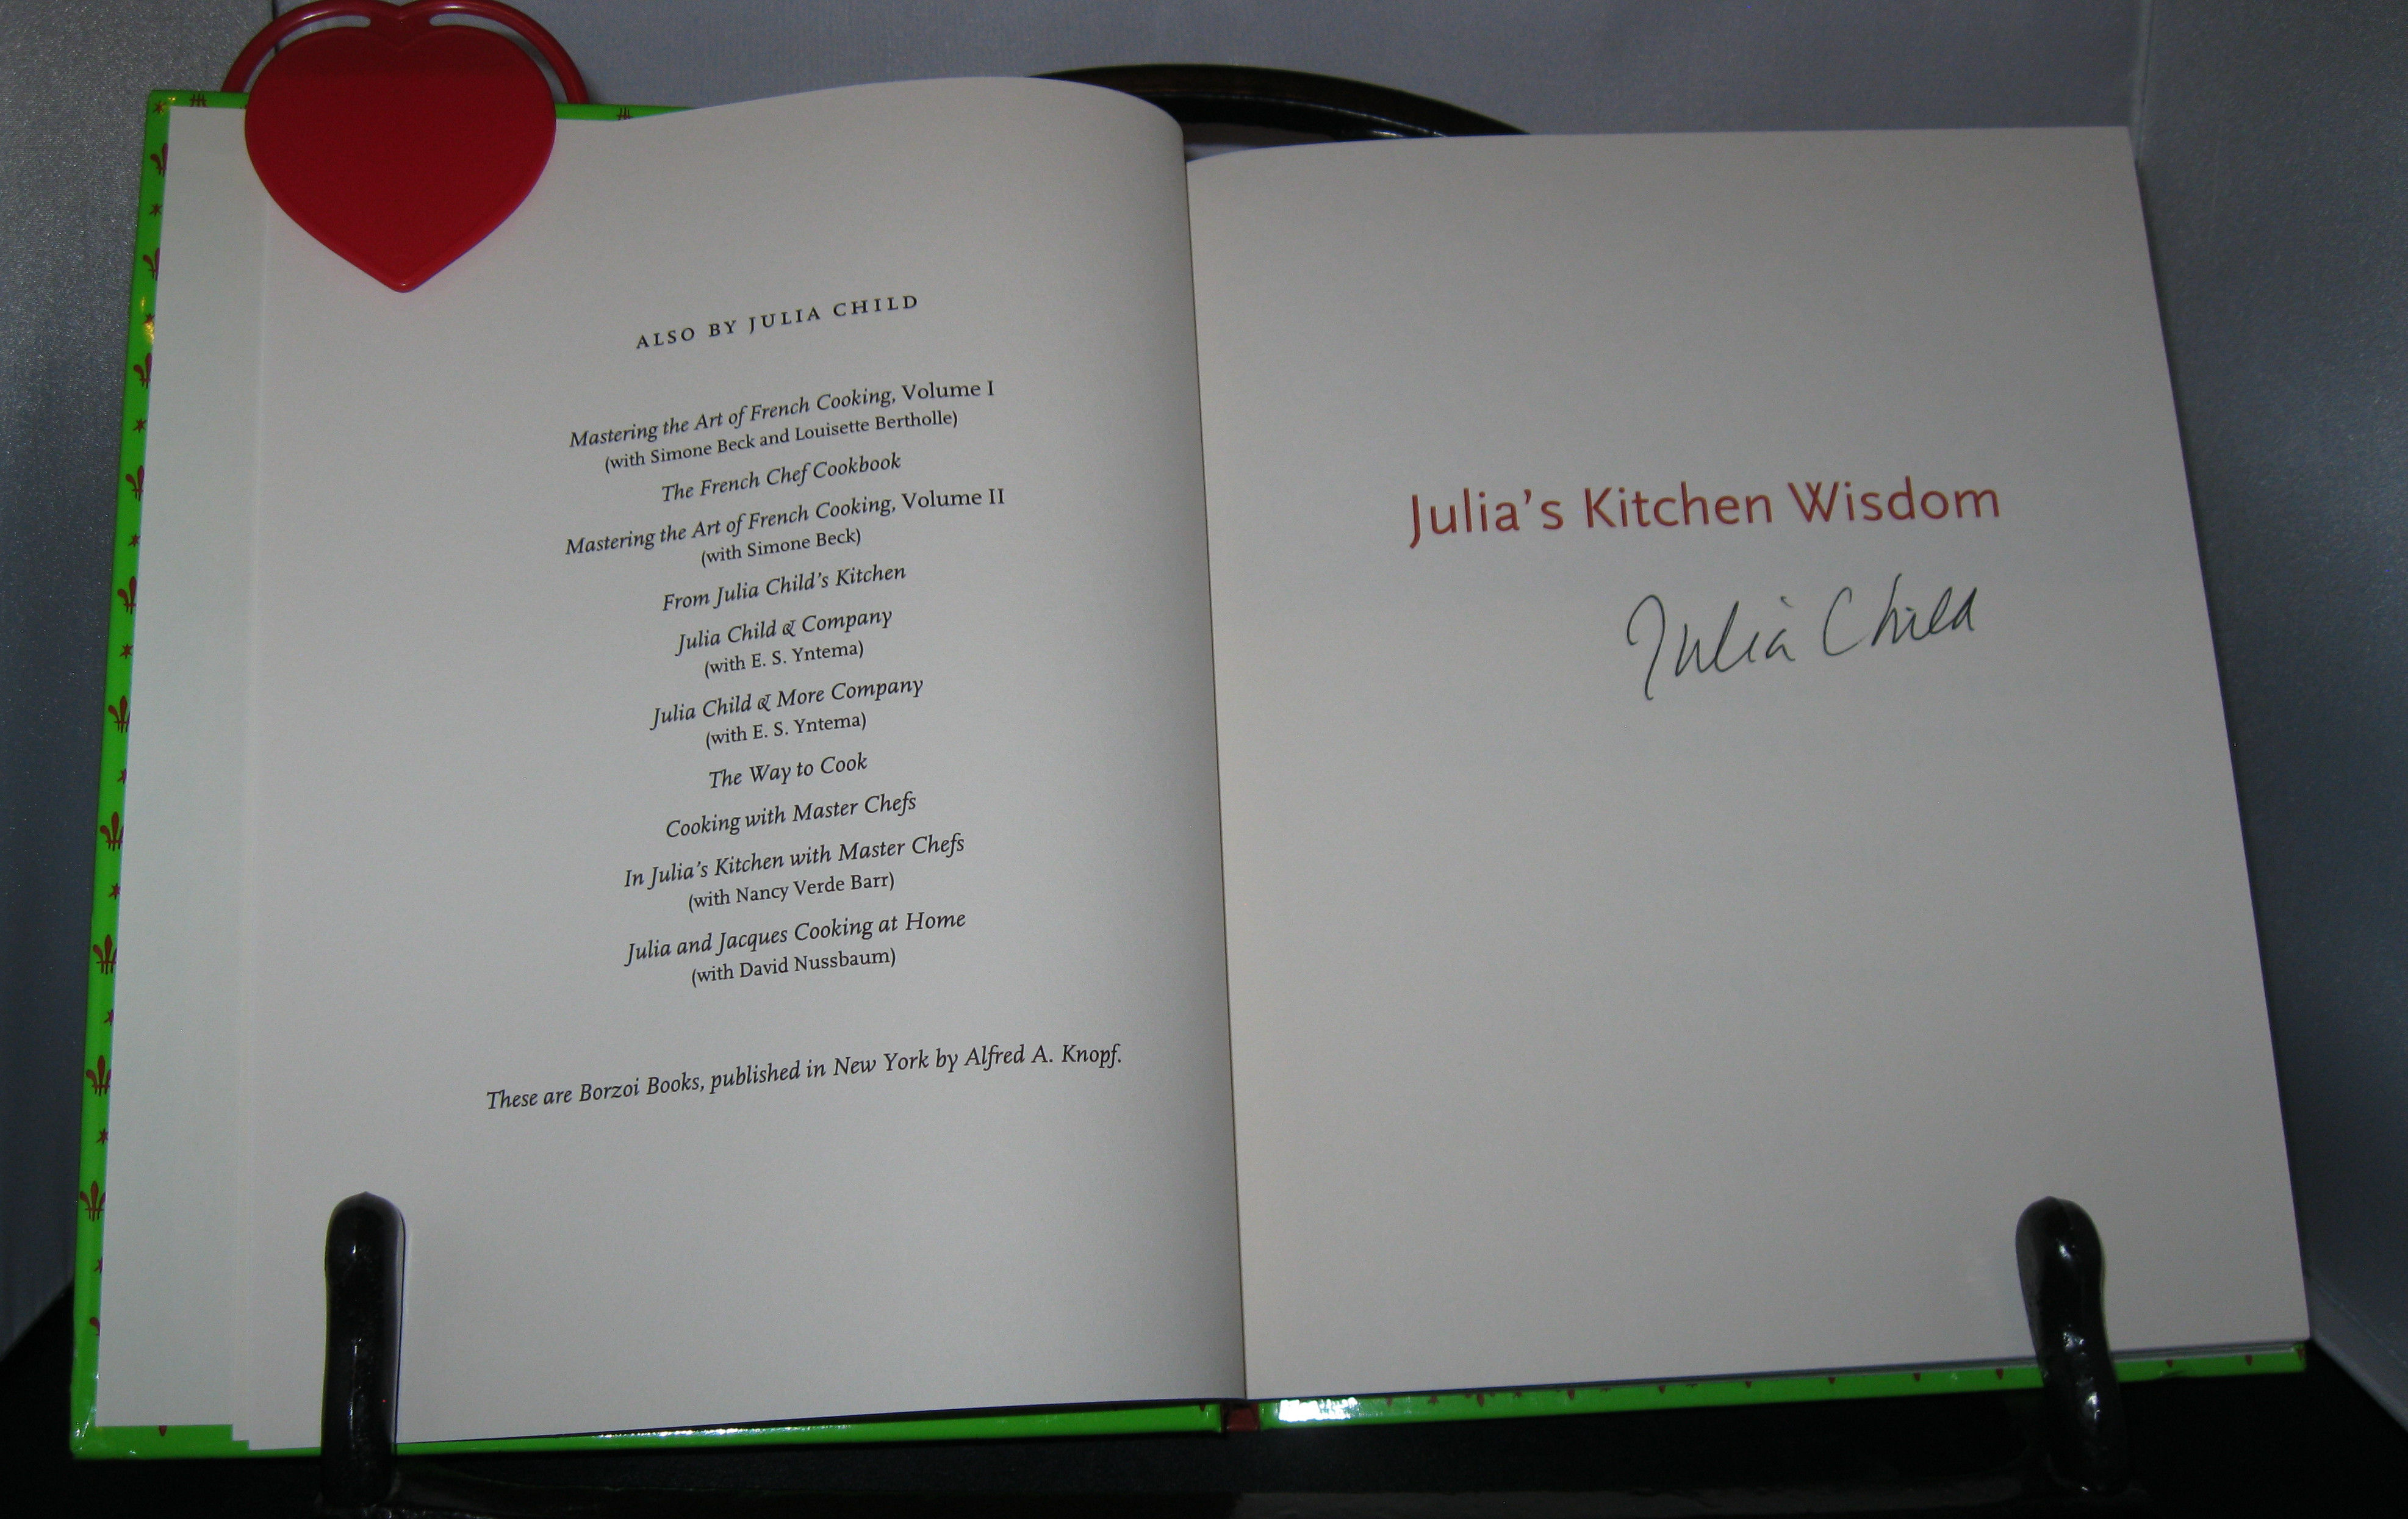 ALSO BY JULIA CHILD
Mastering the Art of French Cooking, Volume I
(with Simone Beck and Louisette Bertholle)
The French Chef Cookbook
Mastering the Art of French Cooking, Volume II
(with Simone Beck)
From Julia Child's Kitchen
Julia Child & Company
(with E. S. Yntema)
Julia Child & More Company
(with E. S. Yntema)
The Way to Cook
Cooking with Master Chefs
In Julia's Kitchen with Master Chefs
(with Nancy Verde Barr)
Julia and Jacques Cooking at Home
(with David Nussbaum)
These are Borzoi Books, published in New York by Alfred A. Knopf.
Julia's Kitchen Wisdom
Julia Child